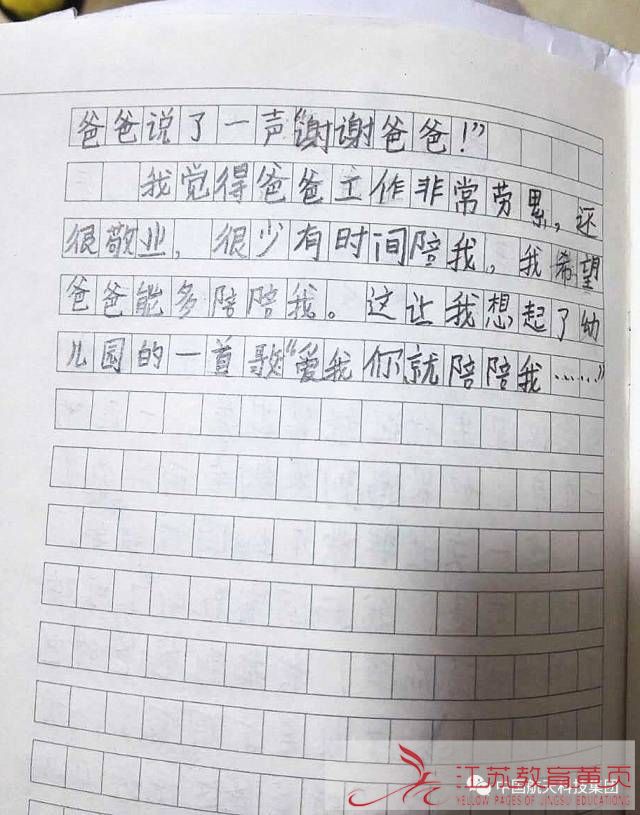 爸爸说了一声“谢谢爸爸！”
我觉得爸爸工作非常劳累，还
很敬业，很少有时间陪我，我希望
爸爸能多陪陪我。这让我想起了幼
儿园的一首歌“爱我你就陪陪我……”
江苏教育黄页
中国航天科技集团
YELLOW PAGES OF JINGSU EDUCATIONG